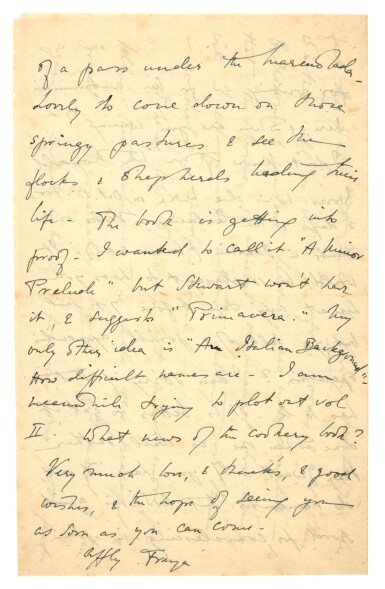 of a pass under the Marmolada -
Lovely to come down on those
springy pastures & see the
flocks & shepherds leading their
life - The book is getting into
proof - I wanted to call it "A Minor
Prelude" but Stewart won't hear
it, & suggests "Primavera." My
only other idea is "An Italian Background" -
How difficult names are - I am
meanwhile trying to plot out vol
II. What news of the cookery book?
Very much love, & thanks, & good
wishes, & the hope of seeing you
as soon as you can come -
affly Freya